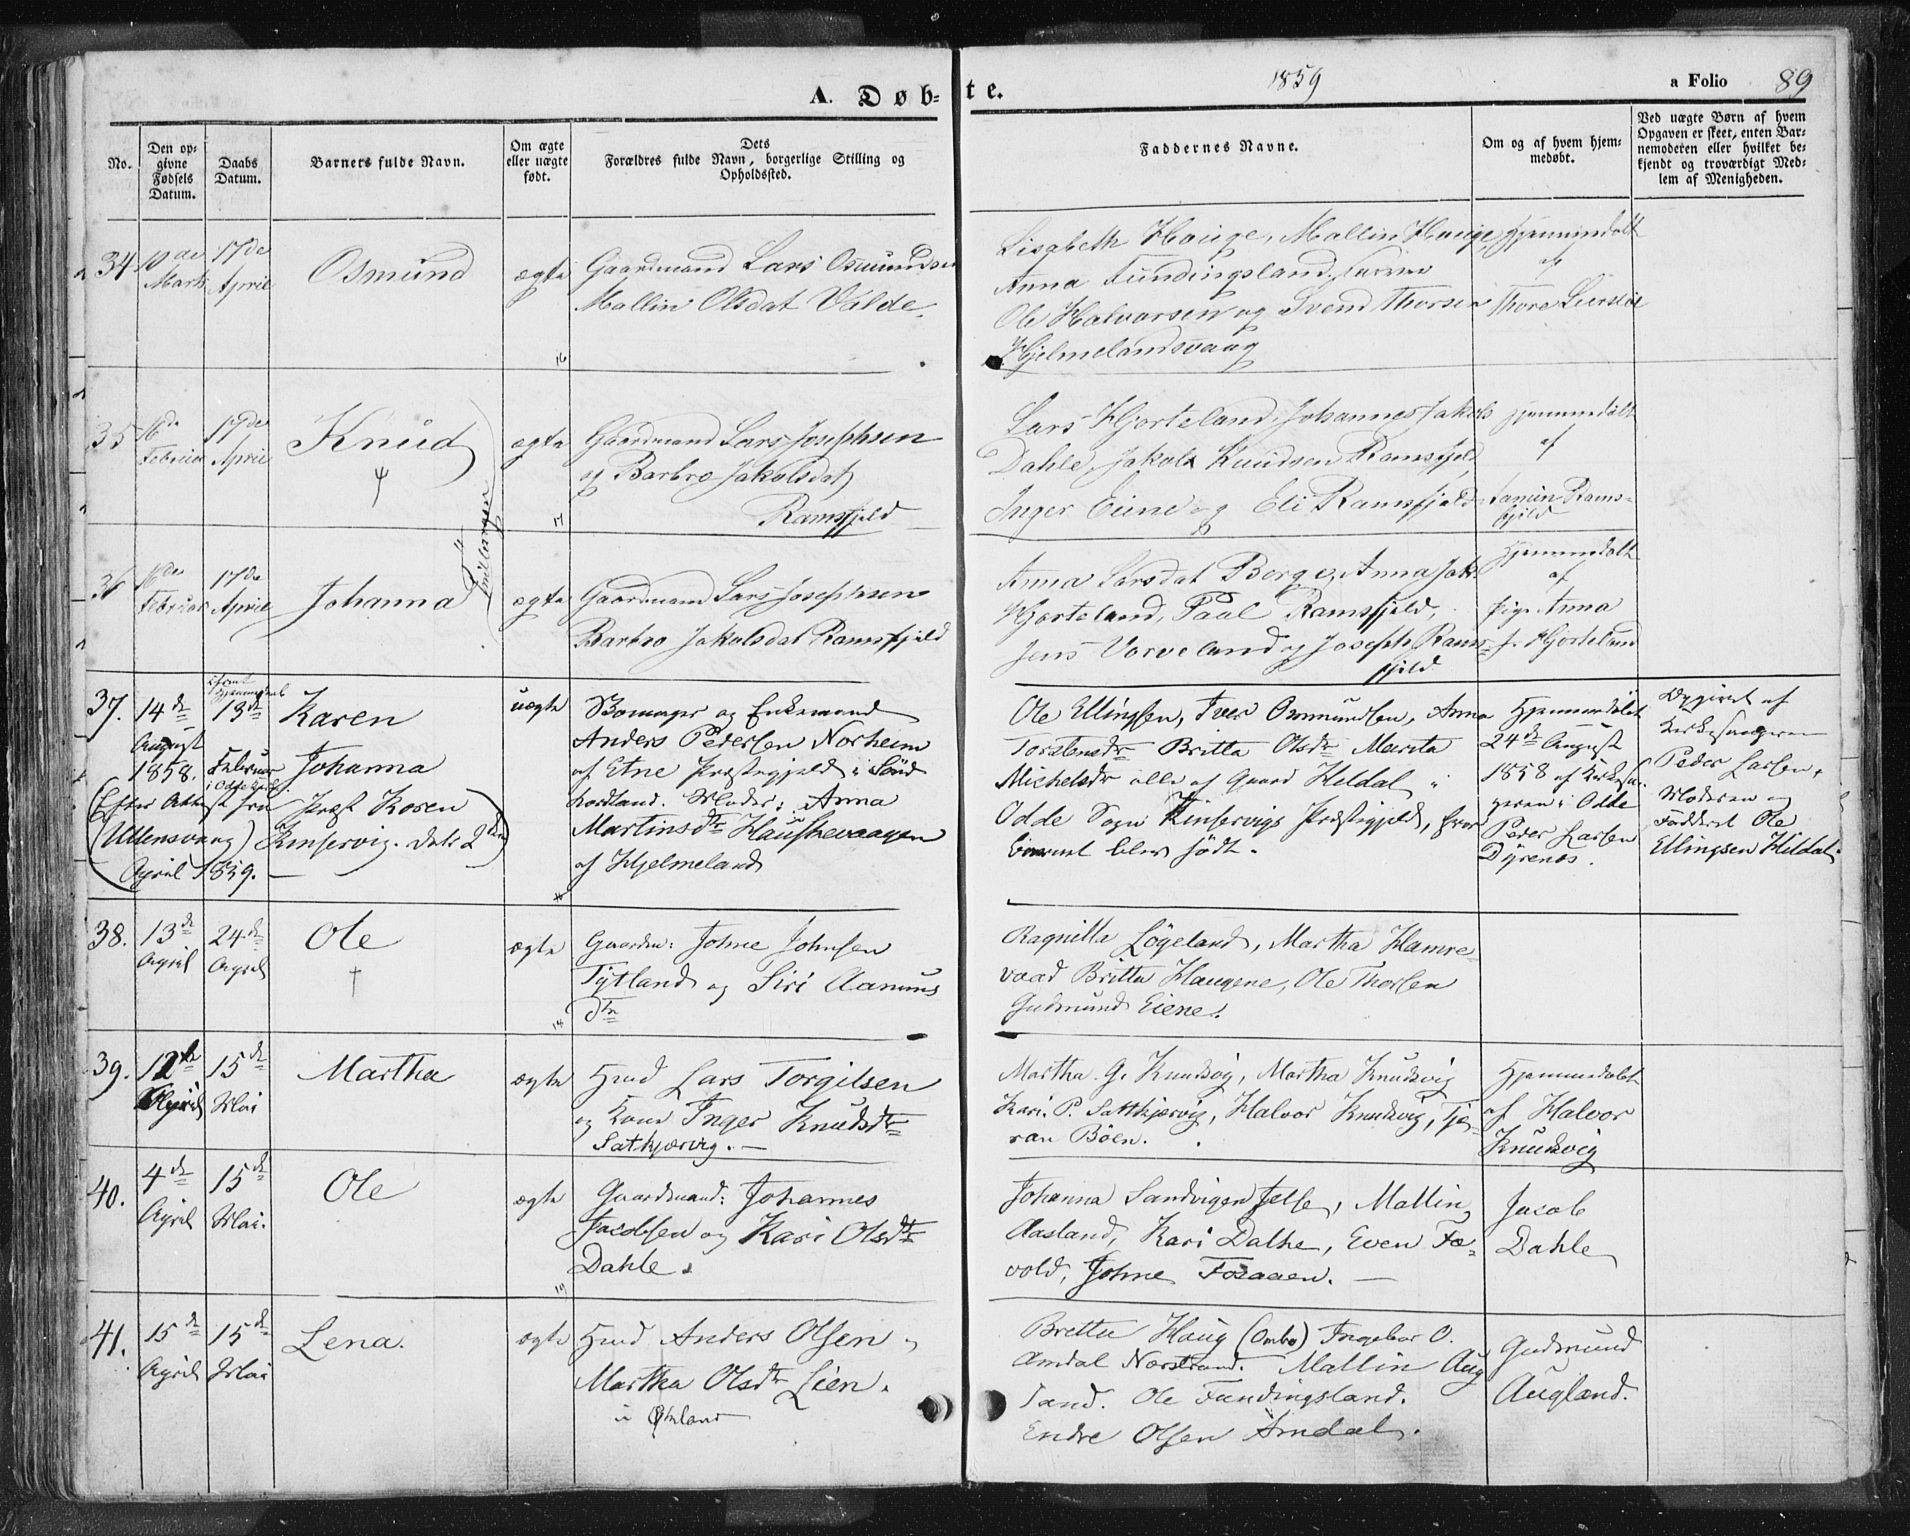 A. Døbte.
1859
a Folio 89
No.
Den opgivne Fødsels Datum.
Daabs Datum.
Barnets fulde Navn.
Om ægte eller uægte født.
Dets Forældres fulde Navn, borgerlige Stilling og Opholdssted.
Faddernes Navne.
Om og af hvem hjemmedøbt.
Ved uægte Børn af hvem Opgaven er skeet, enten Barnemoderen eller hvilket bekjendt og troværdigt Medlem af Menigheden.
34
10de Marts
17de April
Osmund
ægte
Gaardmand Lars Osmundsen
Mallin Olsdat Valde
Lisabeth Hauge, Mallin Hauge,
Anna Fundingsland,
Ole Halvorsen og Svend Thorsen
Hjelmelandsvaag
Hjemmedøbt
af
Thore
35
16de Februar
17de April
Knud
Tvillinger
ægte
Gaardmand Lars Josephsen
og Barbro Jakobsdat
Ramsfjeld
Lars Hjorteland, Johannes Jakobs
Dahle, Jakob Knudsen Ramsfjeld
Inger Eiene og Eli Ramsfjeld
hjemmedøbt
af
Ramsfjeld
36
16de Februar
17de April
Johanna
ægte
Gaardmand Lars Josephsen
Barbro Jakobsdat Ramsfjeld
Anna Larsdat Borge, Anna Jak.
Hjorteland, Paal Ramsfjeld,
Jens Vorveland og Joseph Ramsfjeld
Hjemmedøbt
af
Pige Anna
J. Hjorteland
37.
14de August 1858.
13de Februar
Karen
Johanna
(Efter Attest fra Præst Koren
(Ullensvang) Kinservig. Dat: 2den
April 1859.
uægte
og Enkemand
Anders Pedersen Norheim
af Etne Præstegjeld i Sønd
hordland. Moder: Anna
Martinsdtr Hauskevaagen
af Hjelmeland
Ole Ellingsen, Iver Ommundsen, Anna
Torstensdtr Britta Olsdtr Marita
Michelsdtr alle af Gaard Hildal
Odde Sogn Kinservigs Præstegjeld, hvor
barnet blev født.
Hjemmedøbt
24de August
1858 af Kirkesangeren i Odde
Peder Larsen
Dyrenæs.
Opgivet af
Kirkesangeren
Peder Larsen,
Moderen og
Fadderet Ole
Ellingsen Hildal.
38.
13de April
24de April
Ole
ægte
Gaardm: Johne Johnsen
Tytland og Siri Aamunds
dtr
Ragnilla Løgeland, Martha Hamre
vaad Britta Haugene, Ole Thorsen
Gudmund Eiene.
39.
12te April
15de Mai
Martha
ægte
Huusmd Lars Torgilsen
og Kone Inger Knudsdtr
Satkjærvig.
Martha G. Knudsvig, Martha Knudsvig
Kari P. Sattkjærvig, Halvor Knudsvig, Tjø-
ran Bøen.
Hjemmedøbt
af Halvor
Knudsvig
40.
4de April
15de Mai.
Ole
ægte
Gaardmand: Johannes
Jacobsen og Kari Olsdtr
Dahle.
Johanna Sandvigen Jelse, Mallin
Aasland, Kari Dalhe, Even Fæ-
vold, Johne Fosaaen.
Jacob
Dahle
41.
15de April
15de Mai
Lena.
ægte
Huusmd Anders Olsen
Martha Olsdtr Lien.
Bretta Haug (Ombo) Ingebor O.
Amdal Nærstrand. Mallin Aug
land. Ole Fundingsland.
Endre Olsen Amdal.
Gudmund
Augland.